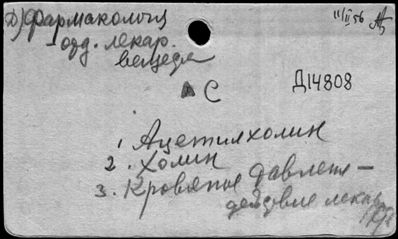 Д) Фармакология
отд. лекар.
веществ
11/II 56
С
Д14808
1 Ацетилхолин
2. Холин
3. Кровяное давление —
действие лекар.